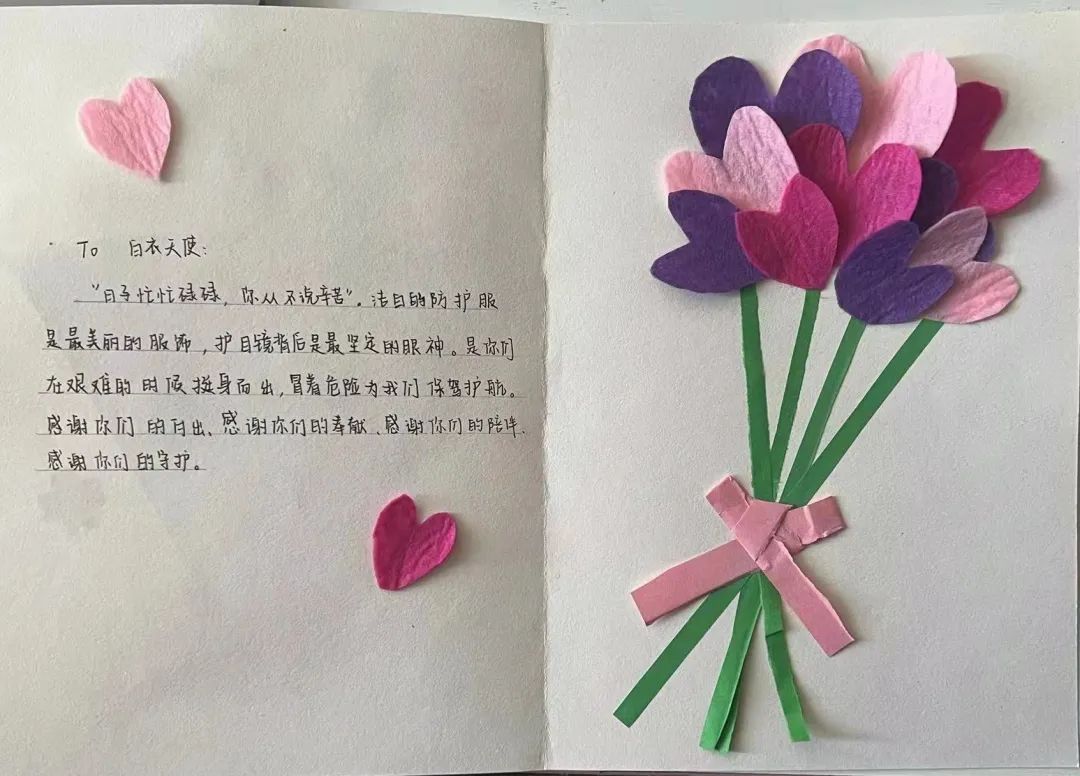 To 白衣天使:
“日子忙忙碌碌，你从不说辛苦”。洁白的防护服
是最美丽的服饰，护目镜背后是最坚定的眼神。是你们
在艰难的时候挺身而出，冒着危险为我们保驾护航。
感谢你们的付出、感谢你们的奉献、感谢你们的陪伴、
感谢你们的守护。